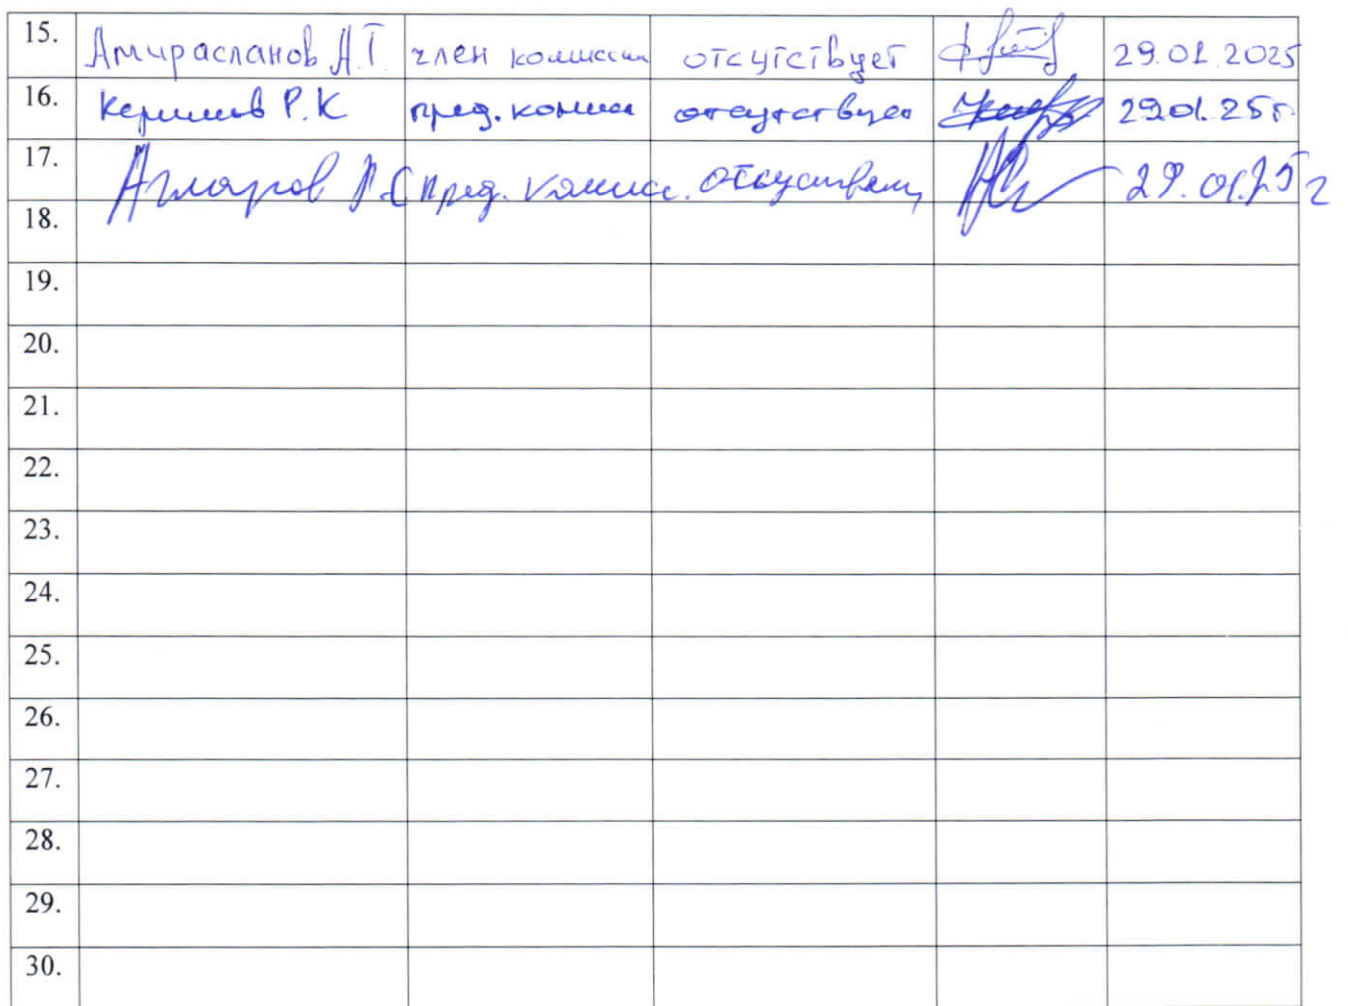 15. Амирасланов А.Т. член комиссии отсутствует 29.01.2025
16. Керимов Р.К пред. комисс отсутствует 29.01.25г.
17. пред. комисс. отсутствует 29.01.25г
18.
19.
20.
21.
22.
23.
24.
25.
26.
27.
28.
29.
30.